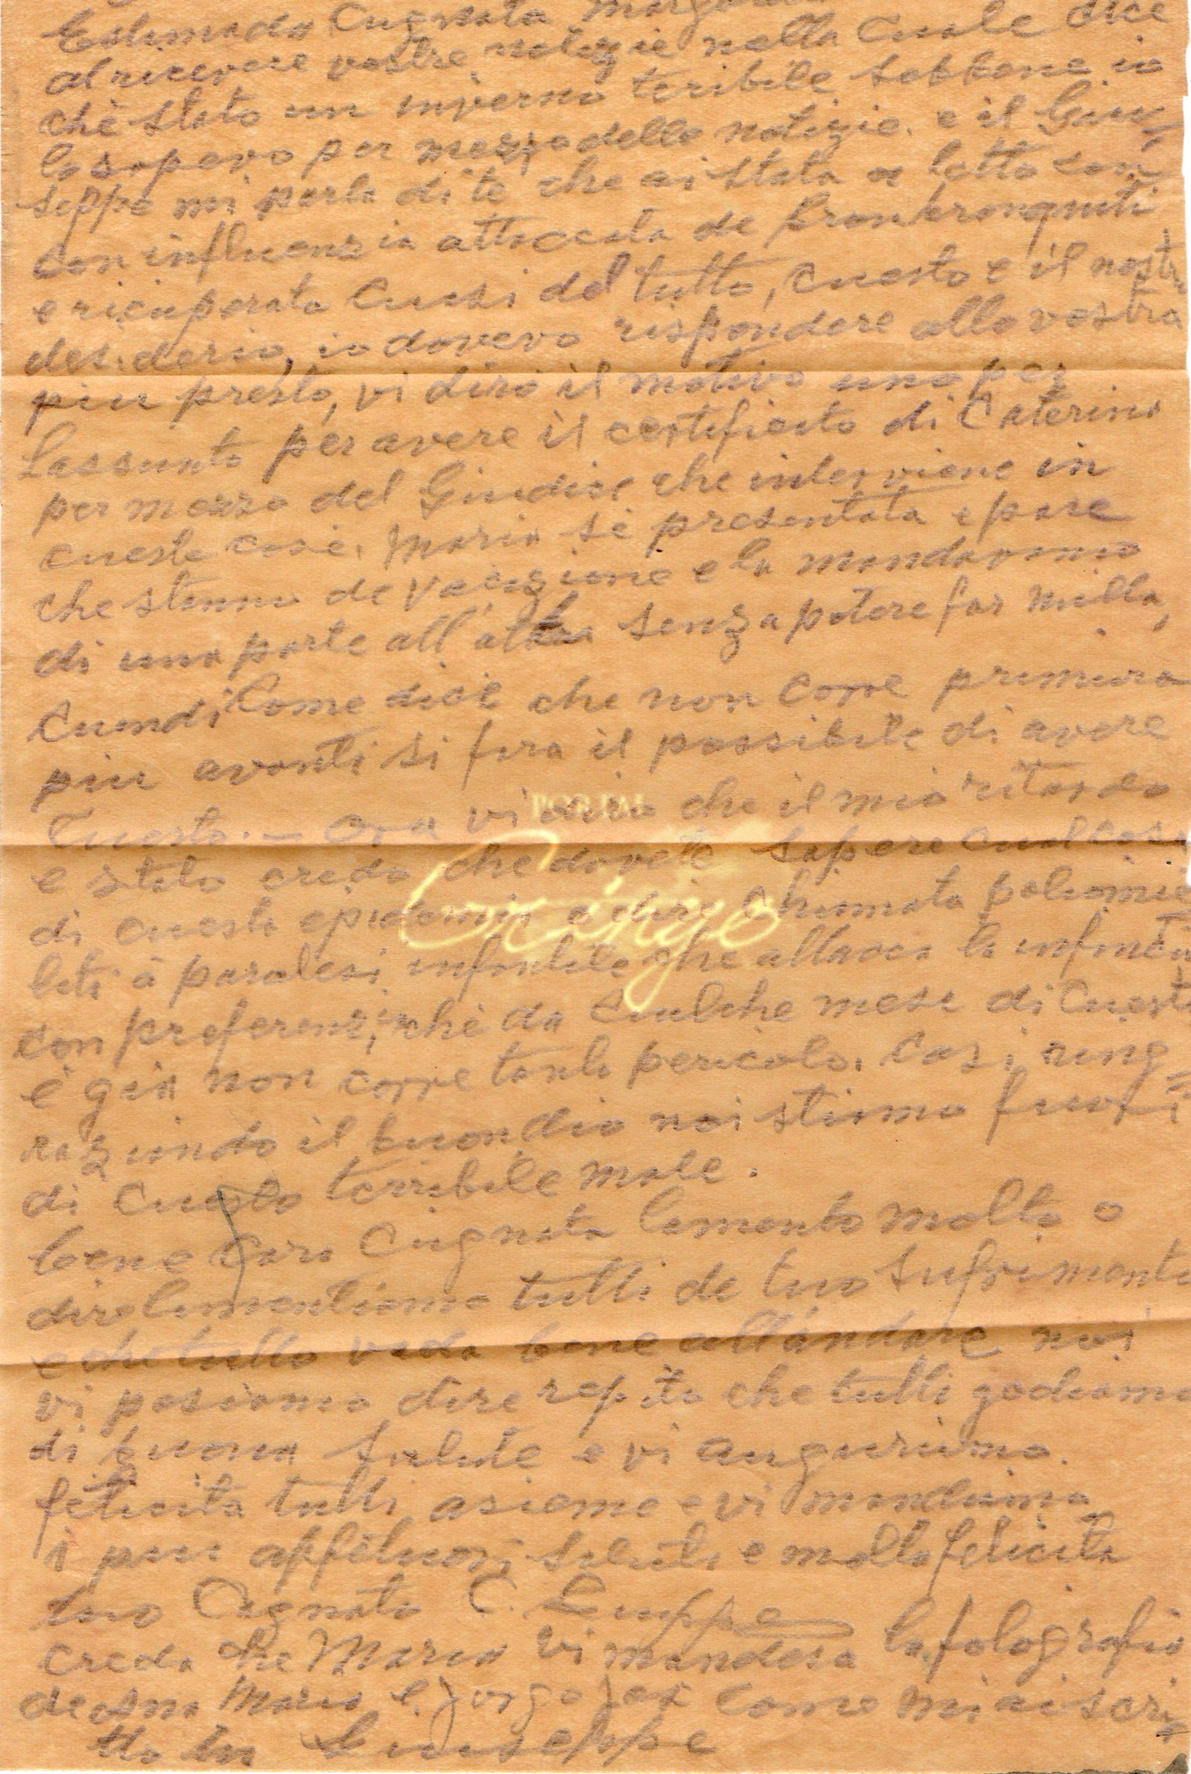 Estimada Cugnata
al ricevere vostre notizie nella cuale dice
che stato un inverno teribile sebbene io
lo sapevo per mezzo delle notizie. e il Giu=
seppe mi parla di te che ai stata a letto con
con influenzia attaccata de
e ricuperata cuasi del tutto, cuesto e il nostro
desiderio, io dovevo rispondere alla vostra
piu presto, vi diro il motivo uno per
Lassunto per avere il certificato di Caterina
per mezzo del Giudice che interviene in
cueste cose, Maria se presentata e pare
che stanno de vacazione e la mandavano
di una parte all'altra senza potere far nulla,
cuindi come dice che non corre primura
piu avanti si fara il possibile di avere
Cuesto. — Ora vi diro che il mio ritardo
e stato credo che dovete sapere cualcosa
di cuesta epidemia o dire chiamata poliomie
liti o paralesi infantile che attacca la infancia
con preferenzia, che da cualche mese di cuesto
e gia non corre tanto pericolo. Casi ring=
raziando il buon, dio noi stiamo fuori
di cuesto terribile male.
bene cara Cugnata lamento molto o
dire lamentiamo tutti de tuo sufrimento
e che tutto vada bene coll'andare noi
vi posiamo dire repito che tutti godiamo
di buona salute e vi auguriamo
felicita tutti asieme e vi mandiamo
i piu affettuosi saluti e molta felicita
tuo Cognato C. Giuseppe
credo che Maria vi mandera la fotografia
de Ana Maria e Jorge come mi ai scri
tto tu Giuseppe
PORTAL
Gringo